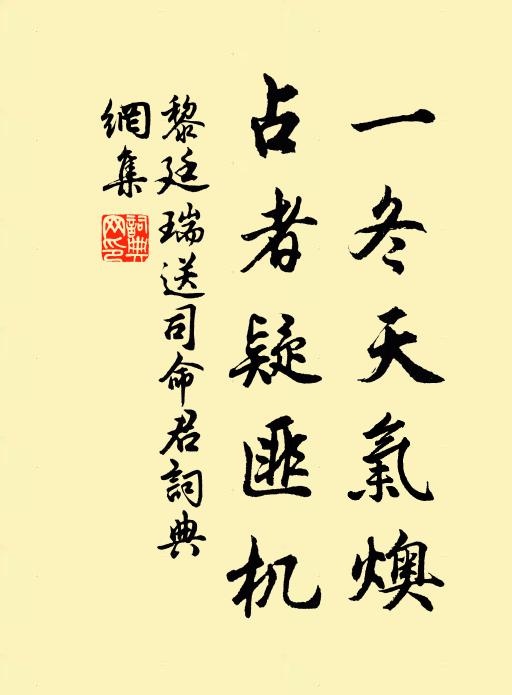 一冬天氣燠
占者疑匪机
黎廷瑞送司命君詞典
網集
詞典
网印